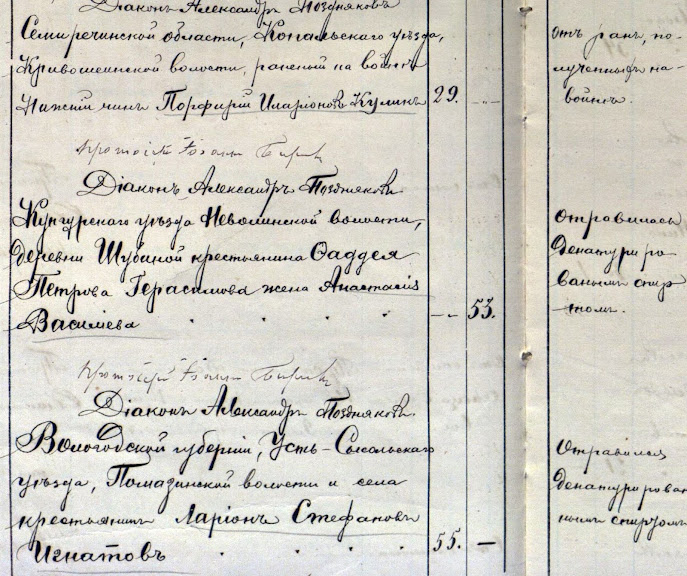 Діаконъ Александръ Поздняковъ
Семирѣчинской области, Копальскаго уѣзда,
Кривошеинской волости, раненый на войнѣ
Нижній чинъ Порфирій Иларіоновъ Куликъ 29.
отъ ранъ, по-
лученныхъ на
войнѣ.
протоіерей Іоаннъ
Діаконъ Александръ Поздняковъ.
Кунгурскаго уѣзда Неволинской волости,
деревни Шубиной крестьянина Ѳаддея
Петрова Герасимова жена Анастасія
Василіева 53.
Отравилась
Денатуриро
ваннымъ спир
томъ.
протоіерей Іоаннъ
Діаконъ Александръ Поздняковъ.
Вологодской губерніи, Усть-Сысольскаго
уѣзда, волости и села
крестьянинъ Ларіонъ Стефановъ
Игнатовъ 55. —
Отравился
Денатурирован
нымъ спиртомъ